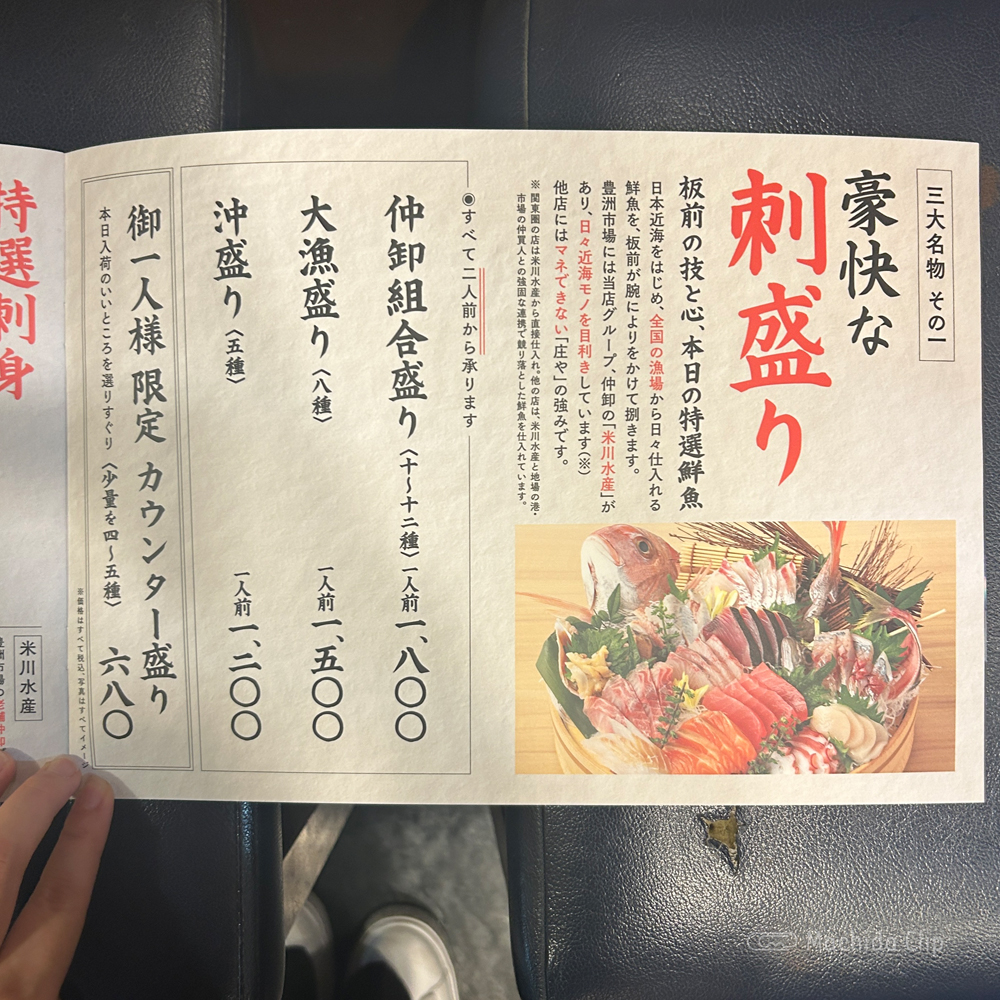 三大名物 その一
豪快な
刺盛り
板前の技と心、本日の特選鮮魚
日本近海をはじめ、全国の漁場から日々仕入れる
鮮魚を、板前が腕によりをかけて捌きます。
豊洲市場には当店グループ、仲卸の「米川水産」が
あり、日々近海モノを目利きしています(※)
他店にはマネできない「庄や」の強みです。
※ 関東圏の店は米川水産から直接仕入れ。他の店は、米川水産と地場の港・
市場の仲買人との強固な連携で競り落とした鮮魚を仕入れています。
◉すべて二人前から承ります
仲卸組合盛り〈十〜十二種〉一人前 一、八〇〇
大漁盛り〈八種〉 一人前 一、五〇〇
沖盛り〈五種〉 一人前 一、二〇〇
御一人様 限定 カウンター盛り
本日入荷のいいところを選りすぐり 〈少量を四〜五種〉 六八〇
※価格はすべて税込、写真はすべてイメージ
特選刺身
米川水産
Machida Clip